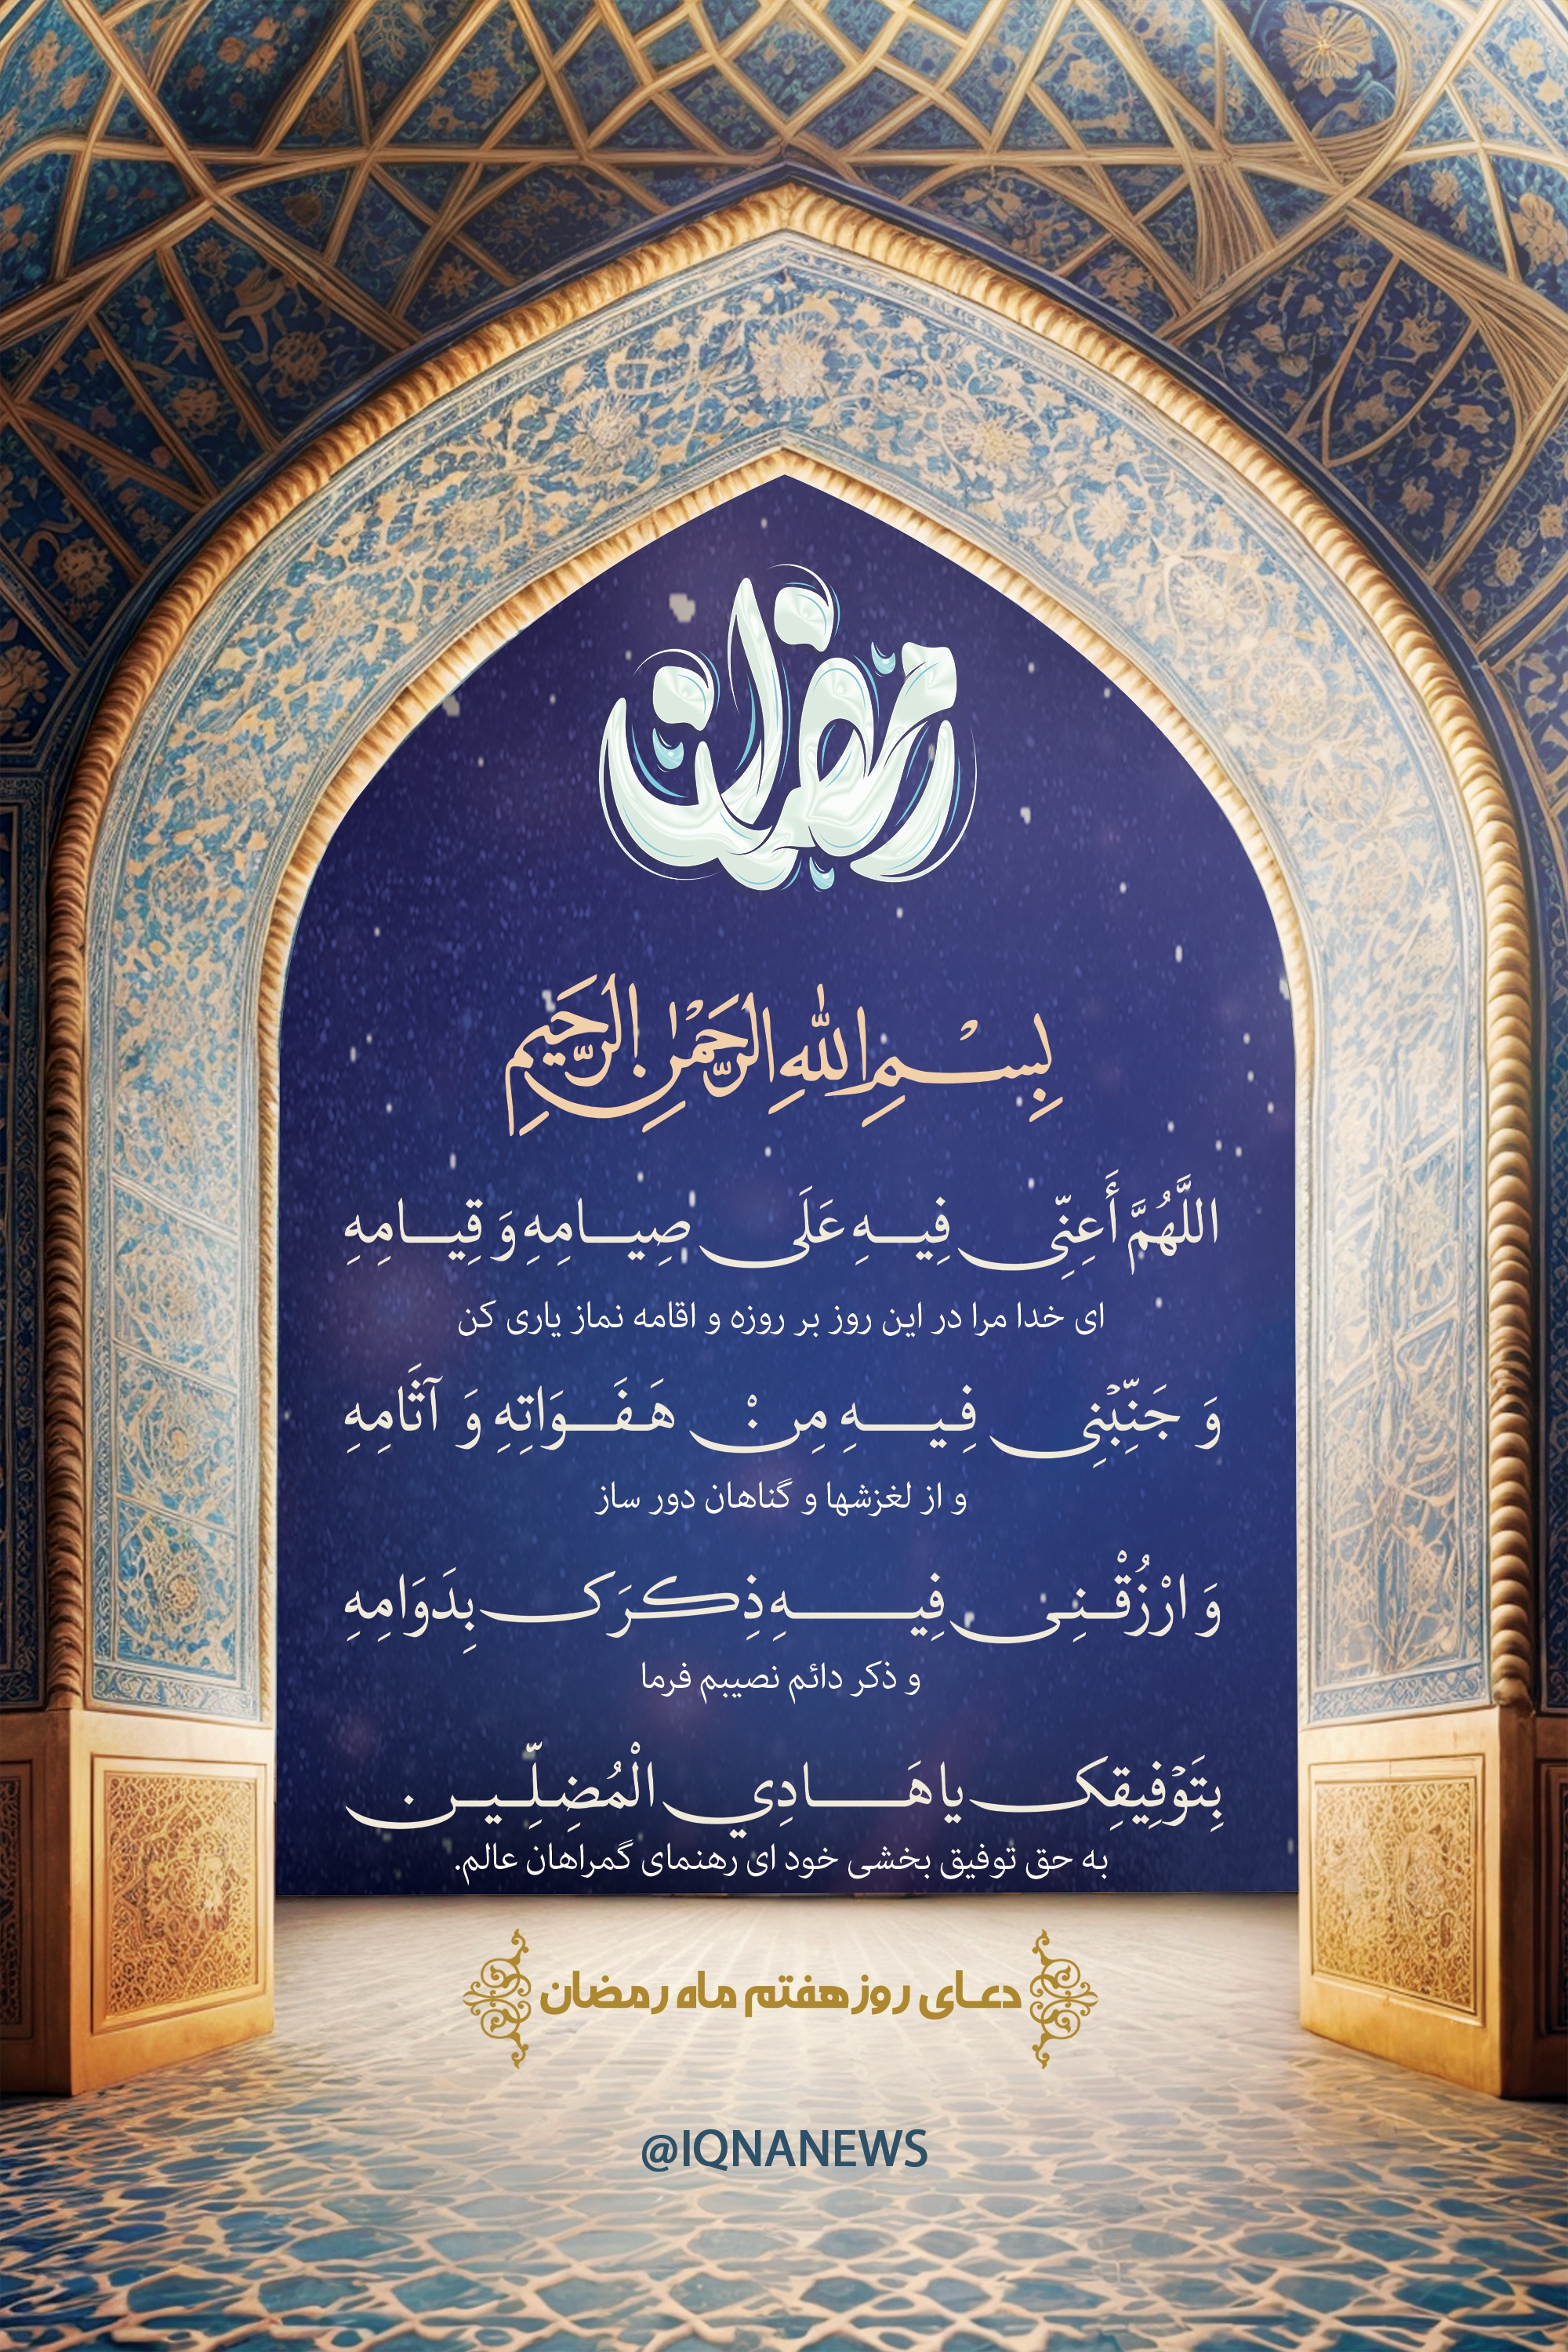 رمضان
بِسْمِ اللهِ الرَّحْمٰنِ الرَّحِيمِ
اللَّهُمَّ أَعِنِّي فِيهِ عَلَى صِيامِهِ وَ قِيامِهِ
ای خدا مرا در این روز بر روزه و اقامه نماز یاری کن
وَ جَنِّبْنِي فِيهِ مِنْ هَفَوَاتِهِ وَ آثَامِهِ
و از لغزشها و گناهان دور ساز
وَ ارْزُقْنِي فِيهِ ذِكرَک بِدَوَامِهِ
و ذکر دائم نصیبم فرما
بِتَوْفِيقِک يا هَادِي الْمُضِلِّين
به حق توفیق بخشی خود ای رهنمای گمراهان عالم.
دعای روز هفتم ماه رمضان
@IQNANEWS